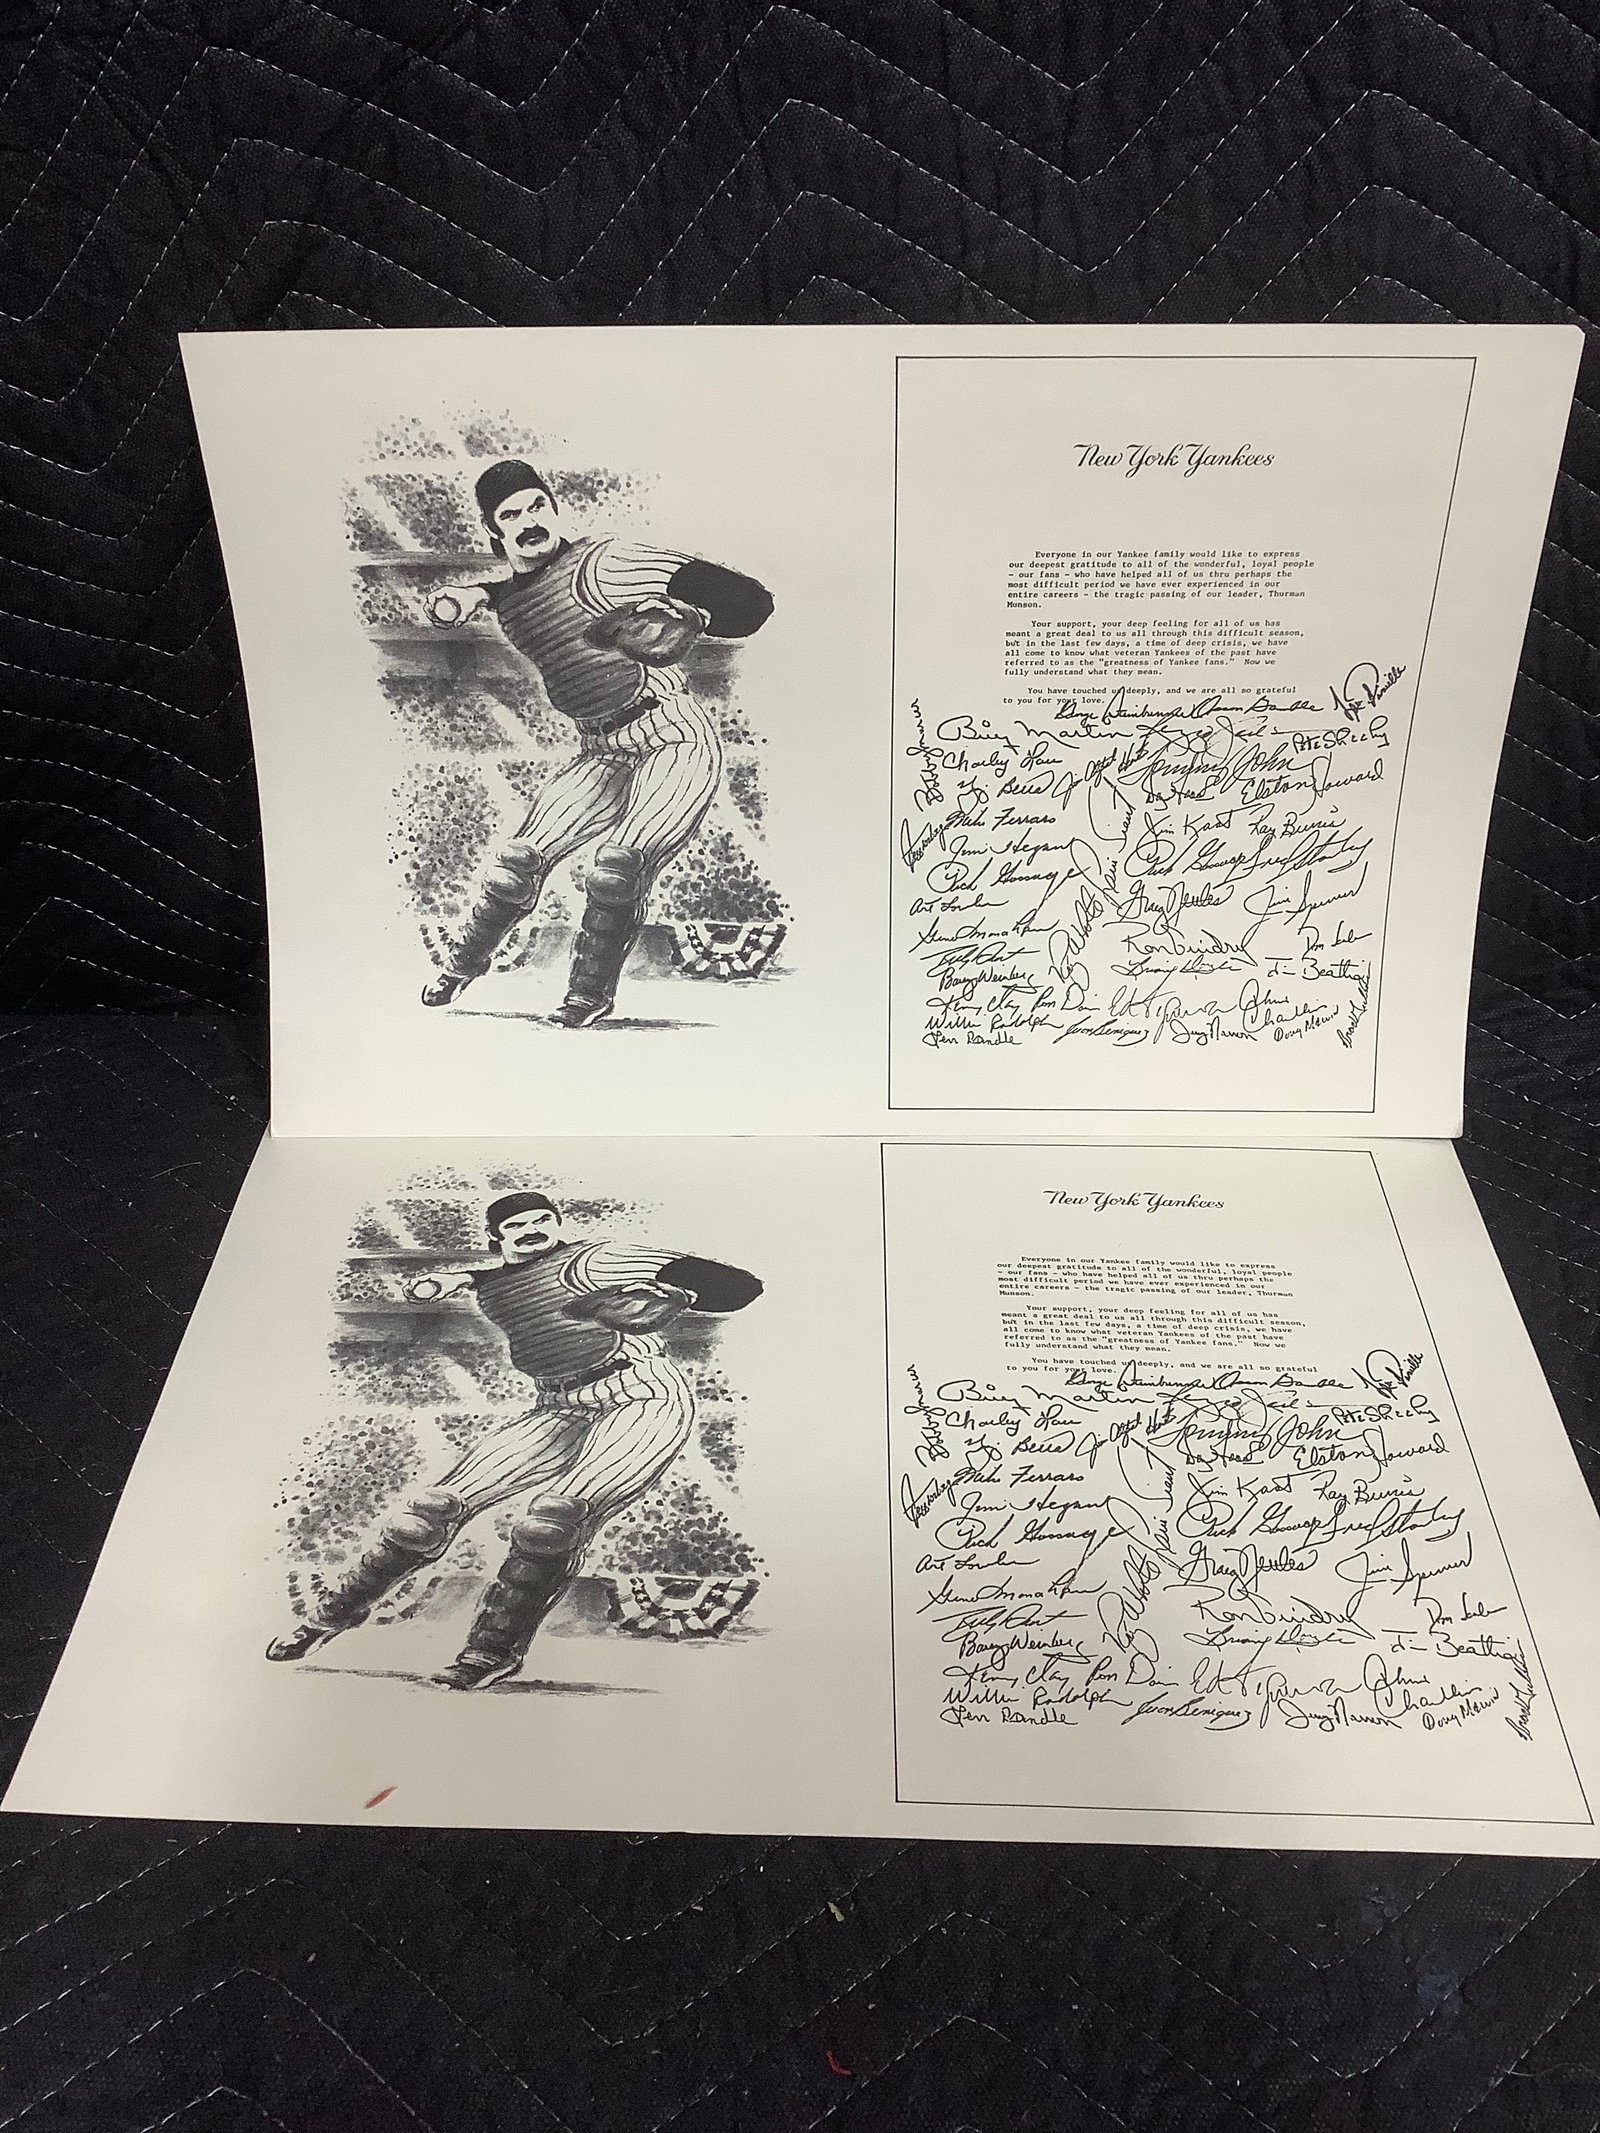 New York Yankees
Everyone in our Yankee family would like to express
our deepest gratitude to all of the wonderful, loyal people
- our fans - who have helped all of us thru perhaps the
most difficult period we have ever experienced in our
entire careers - the tragic passing of our leader, Thurman
Munson.
Your support, your deep feeling for all of us has
meant a great deal to us all through this difficult season,
but in the last few days, a time of deep crisis, we have
all come to know what veteran Yankees of the past have
referred to as the "greatness of Yankee fans." Now we
fully understand what they mean.
You have touched us deeply, and we are all so grateful
to you for your love.
George Steinbrenner
Billy Martin
Pete Sheehy
Charley Lau
Tommy John
Yogi Berra
Elston Howard
Mike Ferraro
Jim Kaat Ray Burris
Jim Hegan
Rich Gossage Fred Stanley
Graig Nettles
Jim Spencer
Art Fowler
Gene Monahan
Ron Guidry
Barry Weinberg
Brian Doyle
Jim Beattie
Kenny Clay Ron Davis Ed Figueroa Chris Chambliss
Willie Randolph
Juan Beniquez
Jerry Narron
Len Randle
New York Yankees
Everyone in our Yankee family would like to express
our deepest gratitude to all of the wonderful, loyal people
- our fans - who have helped all of us thru perhaps the
most difficult period we have ever experienced in our
entire careers - the tragic passing of our leader, Thurman
Munson.
Your support, your deep feeling for all of us has
meant a great deal to us all through this difficult season,
but in the last few days, a time of deep crisis, we have
all come to know what veteran Yankees of the past have
referred to as the "greatness of Yankee fans." Now we
fully understand what they mean.
You have touched us deeply, and we are all so grateful
to you for your love.
George Steinbrenner
Billy Martin
Pete Sheehy
Charley Lau
Tommy John
Yogi Berra
Elston Howard
Mike Ferraro
Jim Kaat Ray Burris
Jim Hegan
Rich Gossage Fred Stanley
Graig Nettles
Jim Spencer
Art Fowler
Gene Monahan
Ron Guidry
Barry Weinberg
Brian Doyle
Jim Beattie
Kenny Clay Ron Davis Ed Figueroa Chris Chambliss
Willie Randolph
Juan Beniquez
Jerry Narron
Len Randle